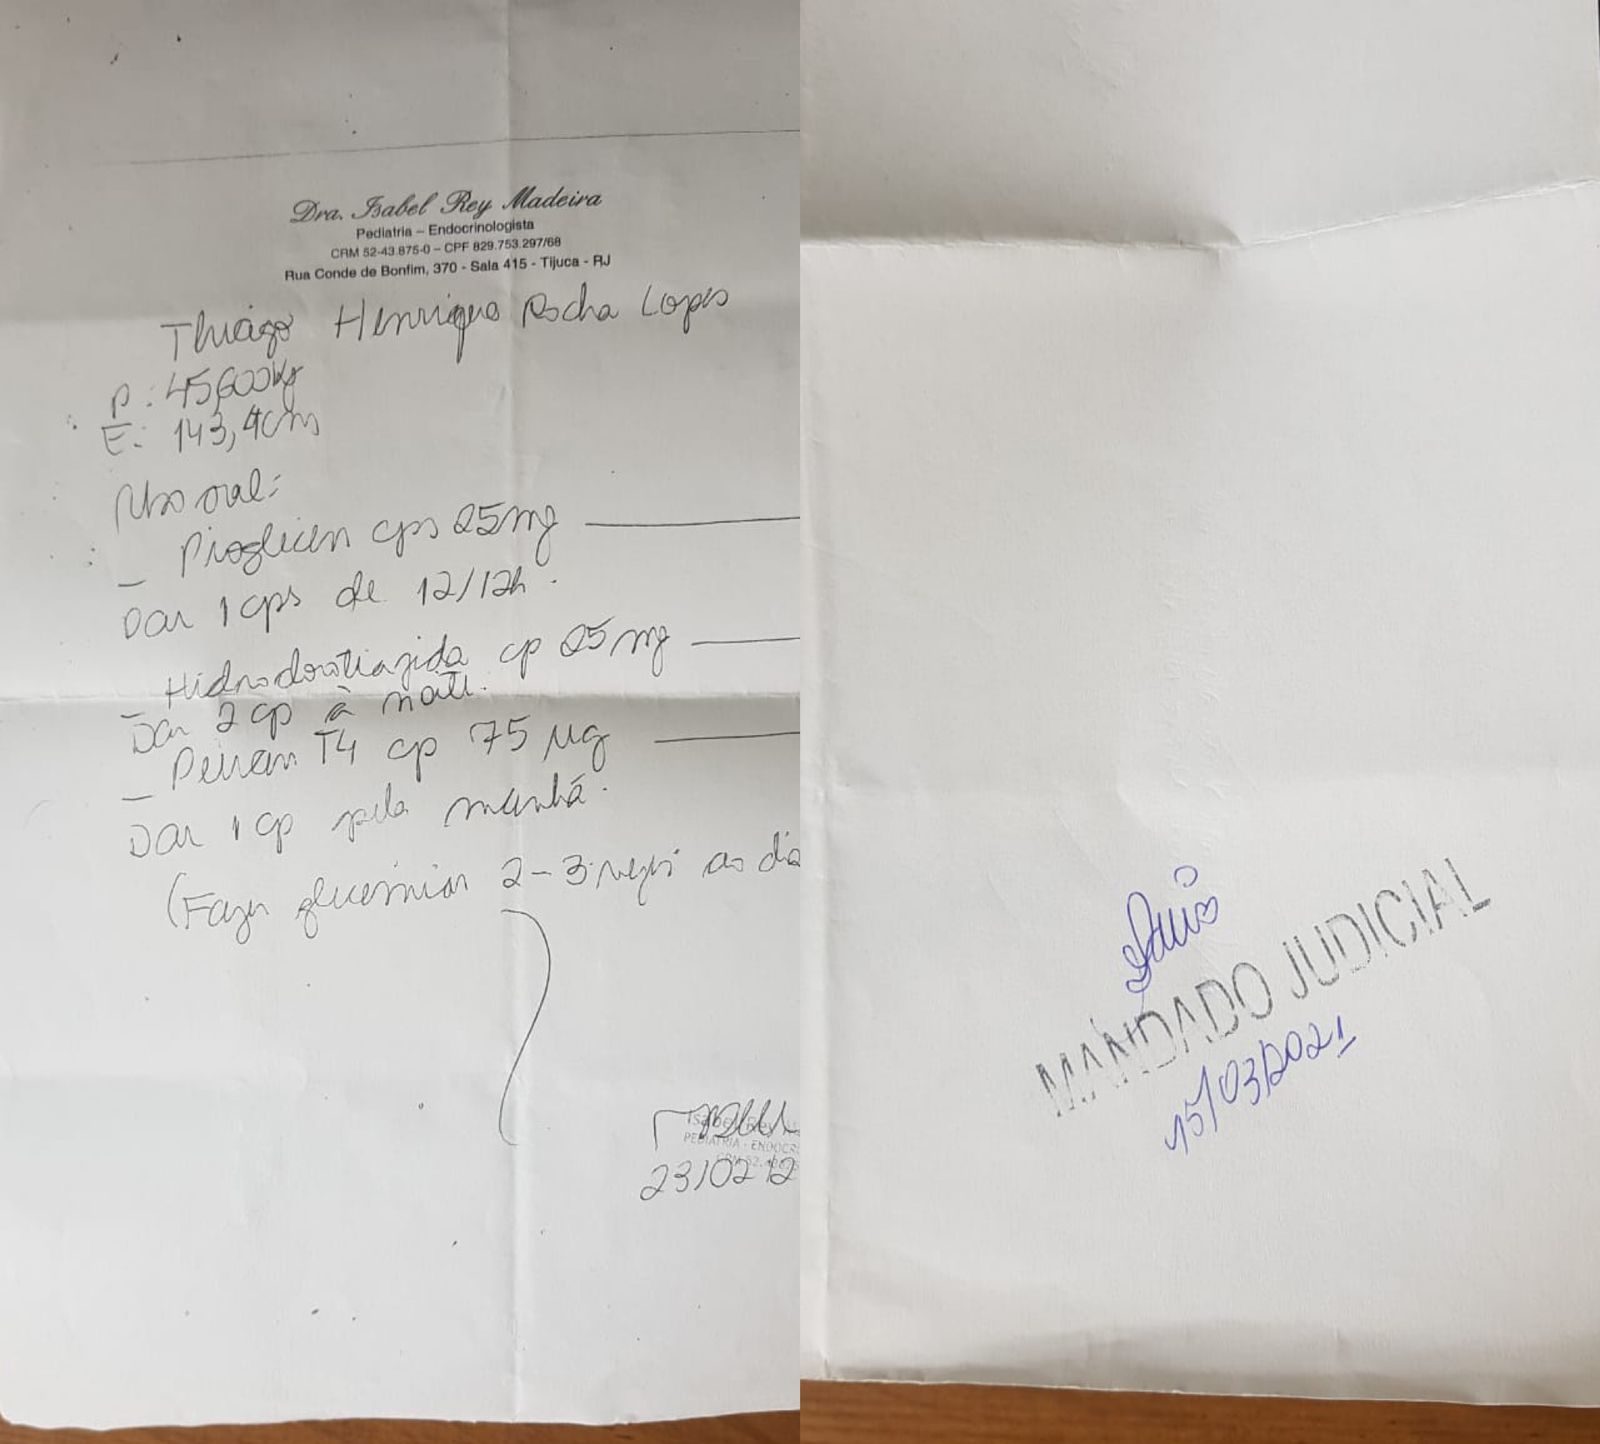 Dra. Isabel Rey Madeira
Pediatria – Endocrinologista
CRM 52-43.875-0 – CPF 829.753.297/68
Rua Conde de Bonfim, 370 - Sala 415 - Tijuca - RJ
Thiago Henrique Rocha Lopes
P: 45,600kg
E: 143,4cm
Uso oral:
- Proglicem cps 25mg
Dar 1 cps de 12/12h.
- Hidroclorotiazida cp 25mg
Dar 2 cp à noite.
- Puran T4 cp 75 µg
Dar 1 cp pela manhã.
(Fazer glicemias 2-3 vezes ao dia
Isabel Rey
PEDIATRIA - ENDOCR
CRM 52.
23/02 12
MANDADO JUDICIAL
15/03/2021